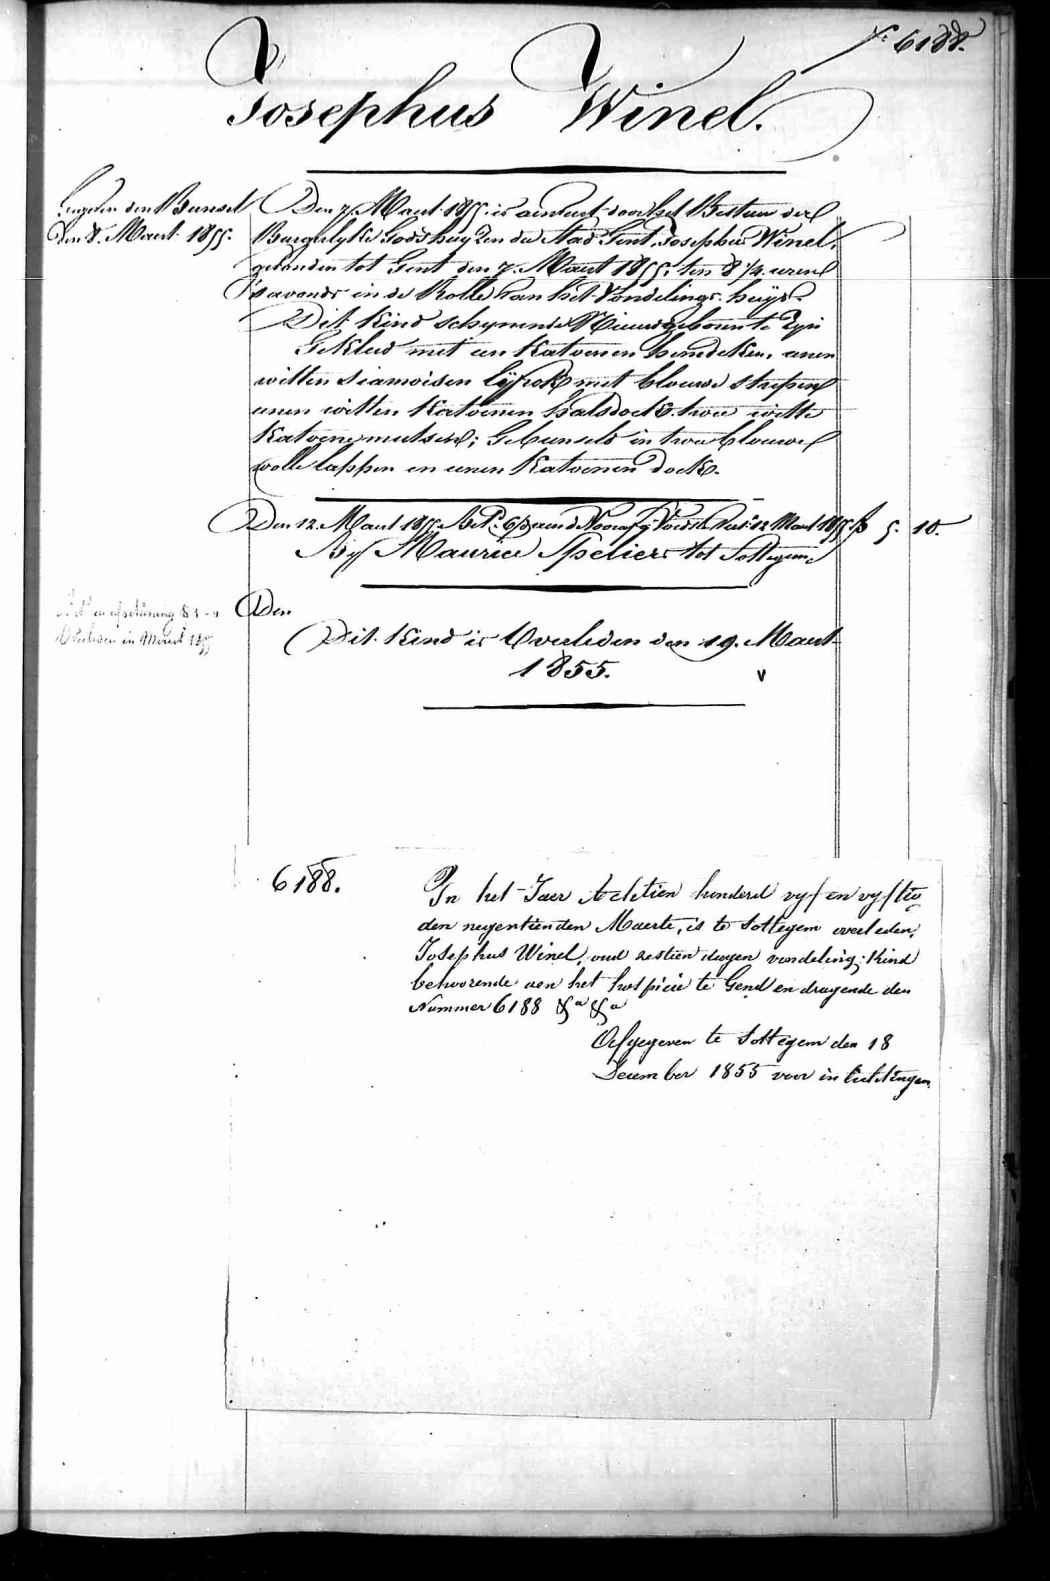 6188.
Josephus Winel.
den Bunsel
den 8. Maert 1855.
Den 7 Maert 1855 is aenveert door het Bestuer der
Burgerlyke Godshuyzen der Stad Gent, Josephus Winel,
gevonden tot Gent den 7. Maert 1855, ten 8 1/2 uren
s'avonds in de Rolle van het Vondelings-huys.
Dit Kind schynende Nieuwgeboren te zyn
Gekleed met een Katoenen hemdeken, eenen
witten siamoisen lyfrok met blauwe strepen
eenen witten Katoenen halsdoek, twee witte
Katoene mutsen; Gebunseld in twee blauwe
wolle lappen en eenen Katoenen doek.
Den 12. Maert 1855. 12 Maert 1855 5. 10.
By Maurice Spelier tot Sottegem
Den
Overleden in Maert 1855
Dit Kind is Overleden den 19. Maert
1855.
v
6188.
In het Jaer Achtien honderd vyf en vyftig
den negentienden Maerte, is te Sottegem overleden,
Josephus Winel, oud zestien dagen vondeling-kind
behoorende aen het hospicie te Gend en dragende den
Nummer 6188 &a &a
Afgegeven te Sottegem den 18
December 1855 voor inlichtingen.